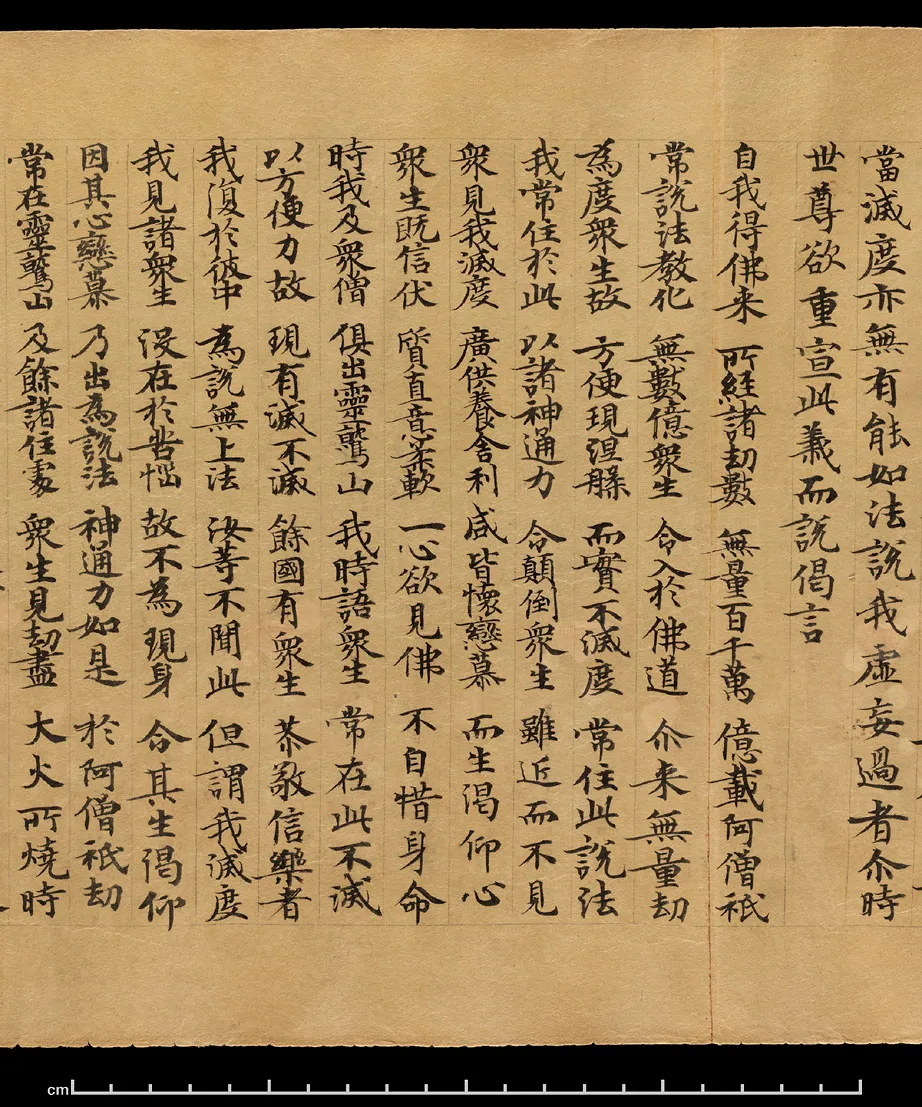 當滅度亦無有能如法說我虛妄過者尒時
世尊欲重宣此義而說偈言
自我得佛来 所經諸劫數 無量百千萬 億載阿僧祇
常說法教化 無數億衆生 令入於佛道 尒来無量劫
為度衆生故 方便現涅槃 而實不滅度 常住此說法
我常住於此 以諸神通力 令顛倒衆生 雖近而不見
衆見我滅度 廣供養舍利 咸皆懷戀慕 而生渴仰心
衆生既信伏 質直意柔軟 一心欲見佛 不自惜身命
時我及衆僧 俱出靈鷲山 我時語衆生 常在此不滅
以方便力故 現有滅不滅 餘國有衆生 恭敬信樂者
我復於彼中 為說無上法 汝等不聞此 但謂我滅度
我見諸衆生 没在於苦惱 故不為現身 令其生渴仰
因其心戀慕 乃出為說法 神通力如是 於阿僧祇劫
常在靈鷲山 及餘諸住處 衆生見劫盡 大火所燒時
cm